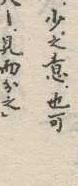 少之意也可
丨見而分之